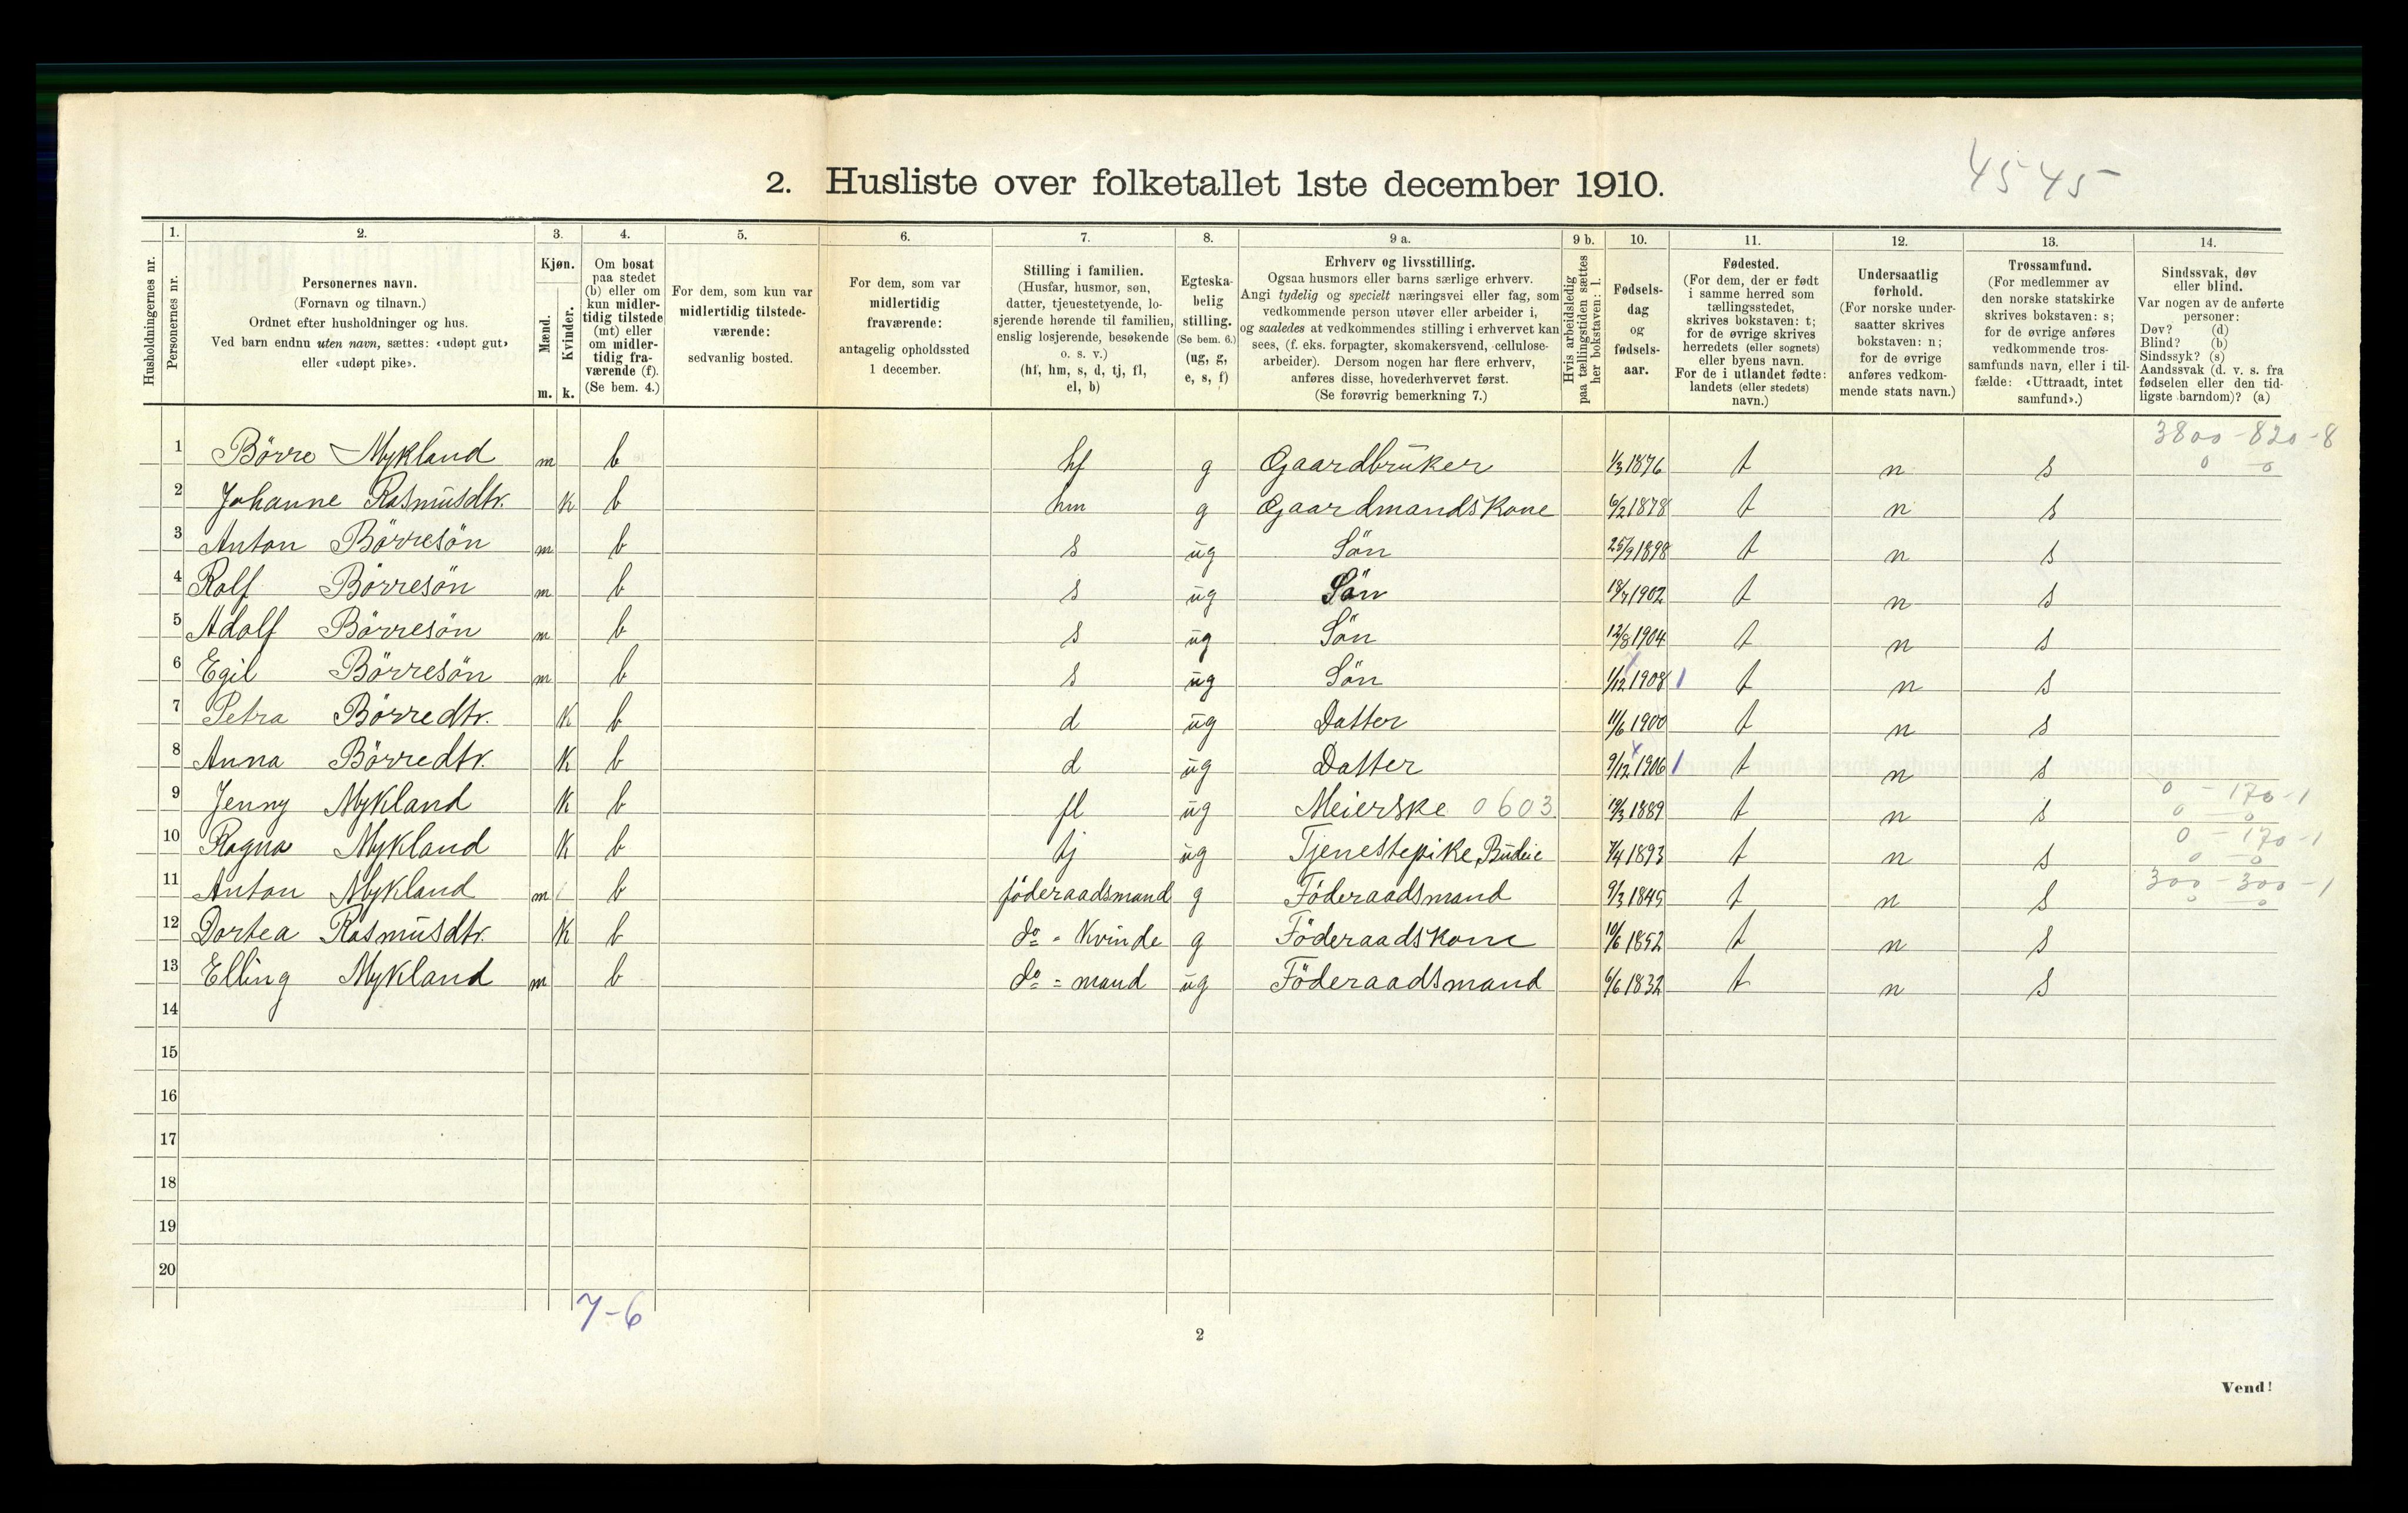 4545
2. Husliste over folketallet 1ste december 1910.
Husholdningernes nr.
1. Personernes nr.
2. Personernes navn. (Fornavn og tilnavn.) Ordnet efter husholdninger og hus. Ved barn endnu uten navn, sættes: «udøpt gut» eller «udøpt pike».
3. Kjøn. Mænd. m. Kvinder. k.
4. Om bosat paa stedet (b) eller om kun midlertidig tilstede (mt) eller om midlertidig fraværende (f). (Se bem. 4.)
5. For dem, som kun var midlertidig tilstedeværende: sedvanlig bosted.
6. For dem, som var midlertidig fraværende: antagelig opholdssted 1 december.
7. Stilling i familien. (Husfar, husmor, søn, datter, tjenestetyende, losjerende hørende til familien, enslig losjerende, besøkende o. s. v.) (hf, hm, s, d, tj, fl, el, b)
8. Egteskabelig stilling. (Se bem. 6.) (ug, g, e, s, f)
9 a. Erhverv og livsstilling. Ogsaa husmors eller barns særlige erhverv. Angi tydelig og specielt næringsvei eller fag, som vedkommende person utøver eller arbeider i, og saaledes at vedkommendes stilling i erhvervet kan sees, (f. eks. forpagter, skomakersvend, cellulosearbeider). Dersom nogen har flere erhverv, anføres disse, hovederhvervet først. (Se forøvrig bemerkning 7.)
9 b. Hvis arbeidsledig paa tællingstiden sættes her bokstaven: l.
10. Fødselsdag og fødselsaar.
11. Fødested. (For dem, der er født i samme herred som tællingsstedet, skrives bokstaven: t; for de øvrige skrives herredets (eller sognets) eller byens navn. For de i utlandet fødte: landets (eller stedets) navn.)
12. Undersaatlig forhold. (For norske undersaatter skrives bokstaven: n; for de øvrige anføres vedkommende stats navn.)
13. Trossamfund. (For medlemmer av den norske statskirke skrives bokstaven: s; for de øvrige anføres vedkommende trossamfunds navn, eller i tilfælde: «Uttraadt, intet samfund».)
14. Sindssvak, døv eller blind. Var nogen av de anførte personer: Døv? (d) Blind? (b) Sindssyk? (s) Aandssvak (d. v. s. fra fødselen eller den tidligste barndom)? (a)
1 Börre Mykland m b hf g Gaardbruker 1/3 1876 t n s 3800-820-8 0 - 0
2 Johanne Rasmusdtr. k b hm g Gaardmandskone 6/2 1878 t n s
3 Anton Börresön m b s ug Sön 25/9 1898 t n s
4 Rolf Börresön m b s ug Sön 1902 t n s
5 Adolf Börresön m b s ug Sön 12/8 1904 t n s
6 Egil Börresön m b s ug Sön 1/12 1908 1 t n s
7 Petra Börredtr. k b d ug Datter 11/6 1900 t n s
8 Anna Börredtr. k b d ug Datter 9/12 1906 1 t n s
9 Jenny Mykland k b fl ug Meierske 0603 1889 t n s 0 - 170-1 0 - 0
10 Ragna Mykland k b tj ug Tjenestepike, Budeie 7/4 1893 t n s 0 - 170-1 0 - 0
11 Anton Mykland m b föderaadsmand g Föderaadsmand 9/3 1845 t n s 300-300-1 0 - 0
12 Dortea Rasmusdtr. k b do - Kvinde g Föderaadskone 10/6 1852 t n s
13 Elling Mykland m b do = mand ug Föderaadsmand 6/6 1832 t n s
14
15
16
17
18
19
20
7-6
2
Vend!